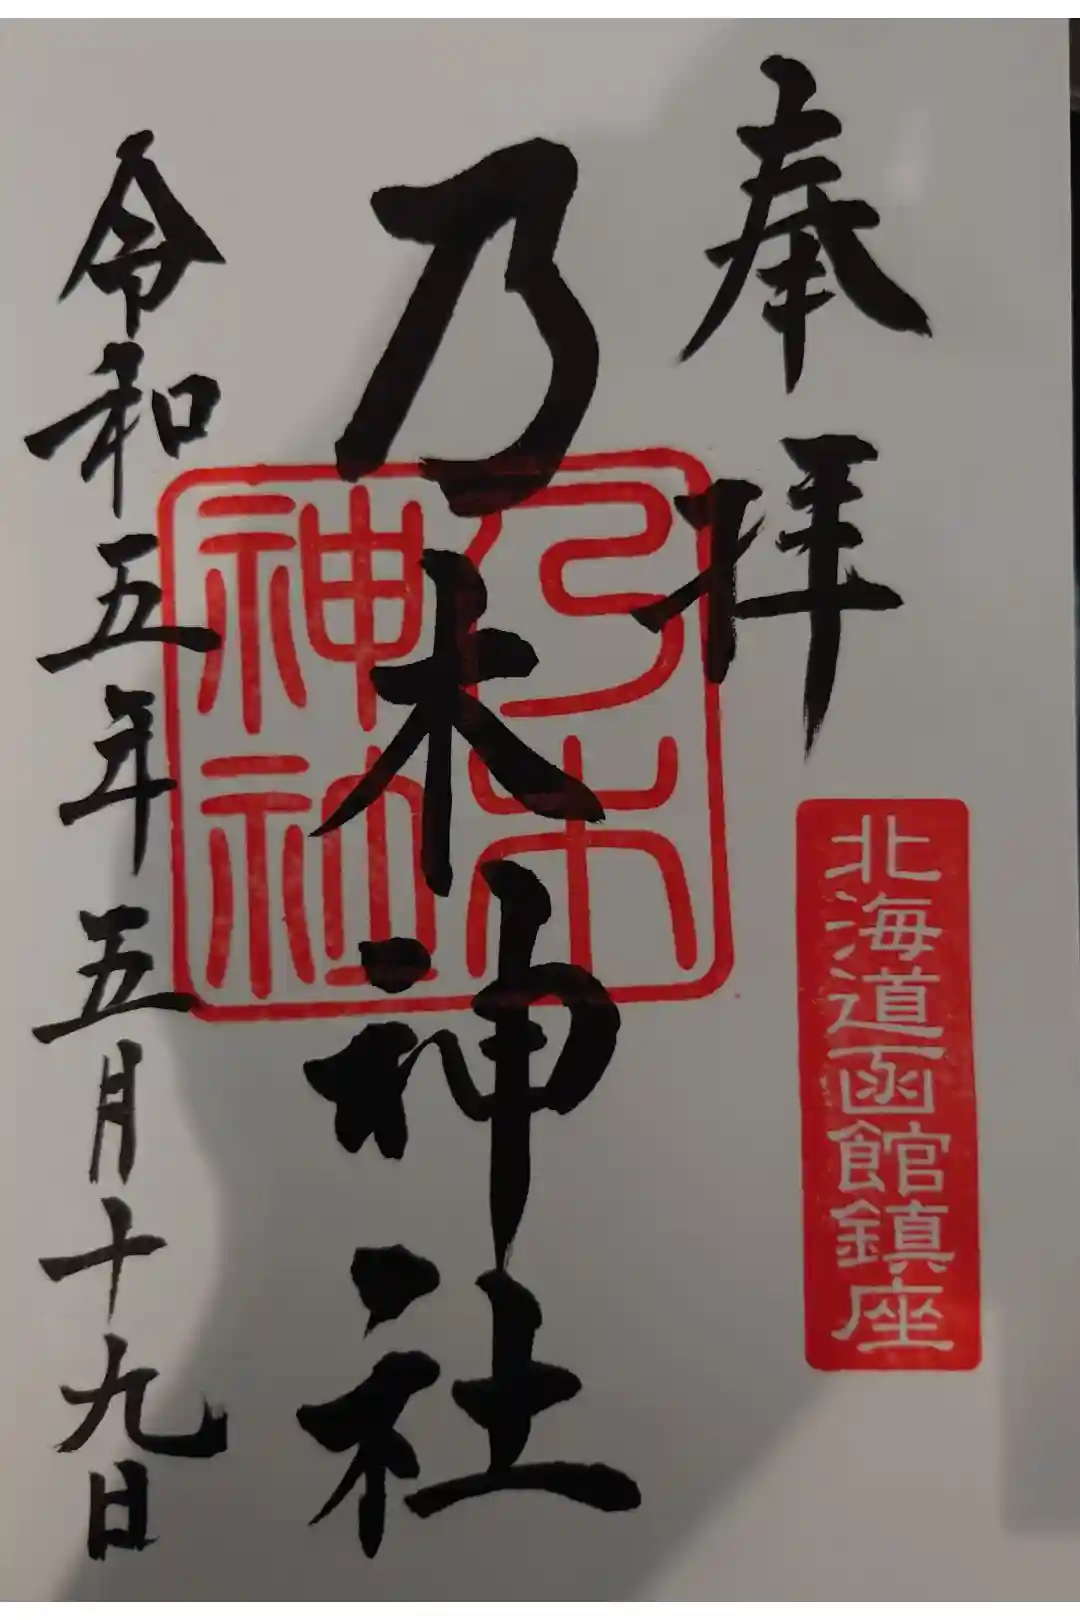 奉拝
北海道函館鎮座
乃木神社
乃木
神社
令和五年五月十九日